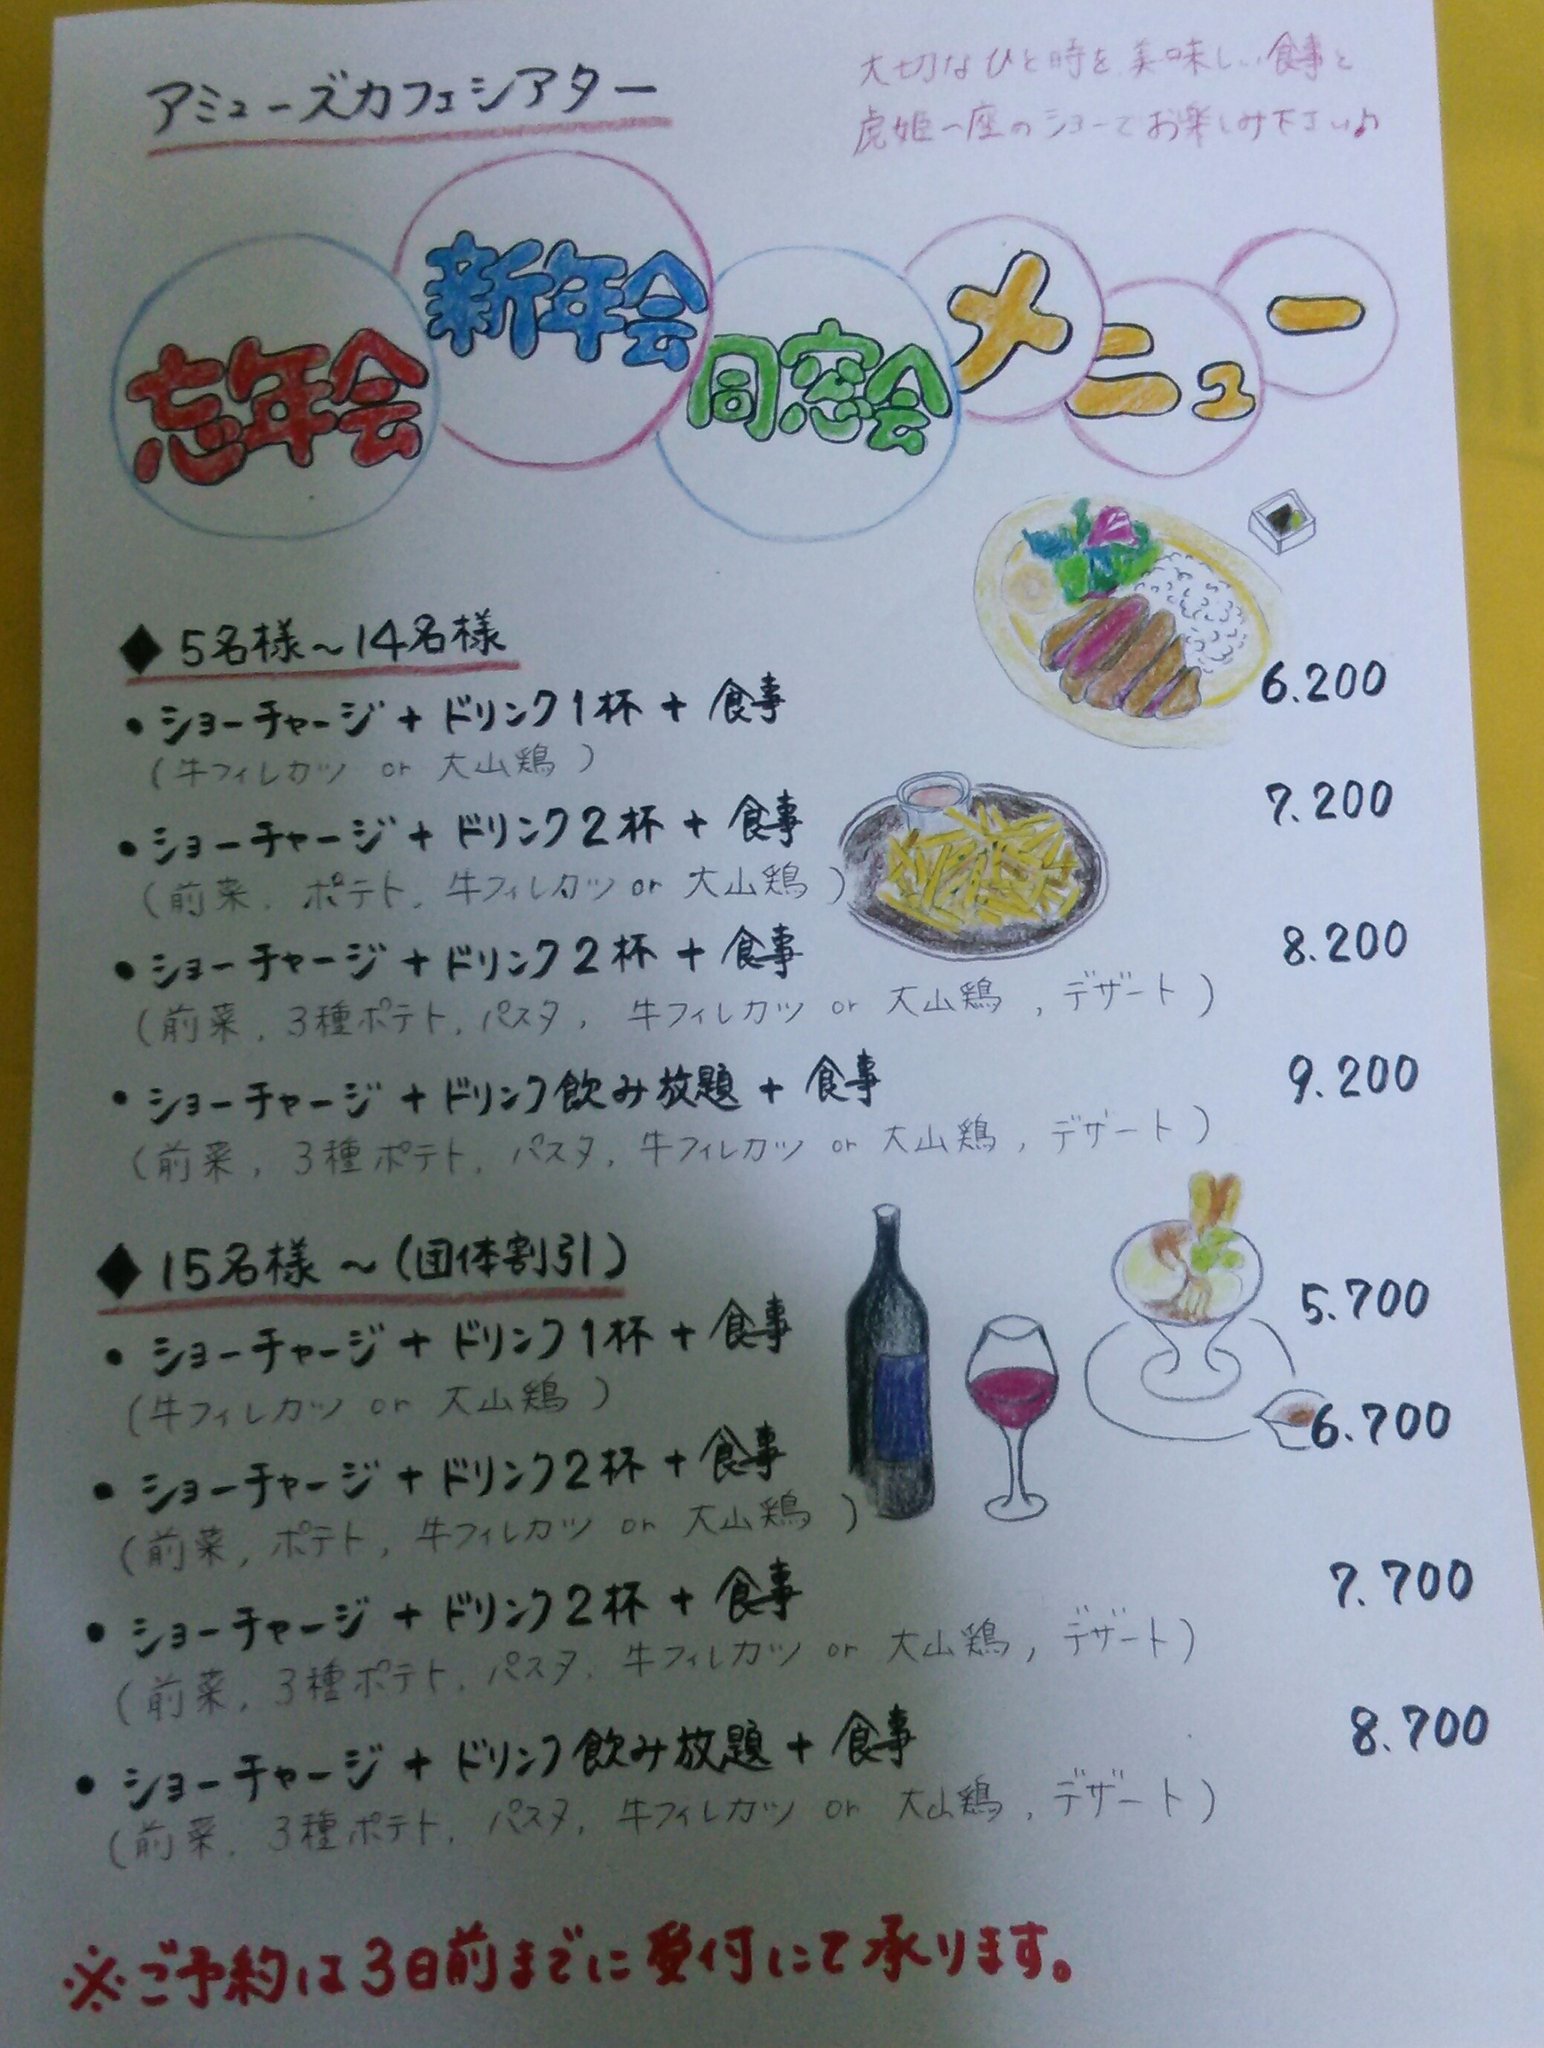 アミューズカフェシアター
大切なひと時を美味しい食事と
虎姫一座のショーでお楽しみ下さい♪
忘年会 新年会 同窓会 メニュー
◆5名様～14名様
・ショーチャージ+ドリンク1杯+食事 6.200
(牛フィレカツ or 大山鶏)
・ショーチャージ+ドリンク2杯+食事 7.200
(前菜, ポテト, 牛フィレカツ or 大山鶏)
・ショーチャージ+ドリンク2杯+食事 8.200
(前菜, 3種ポテト, パスタ, 牛フィレカツ or 大山鶏, デザート)
・ショーチャージ+ドリンク飲み放題+食事 9.200
(前菜, 3種ポテト, パスタ, 牛フィレカツ or 大山鶏, デザート)
◆15名様～(団体割引)
・ショーチャージ+ドリンク1杯+食事 5.700
(牛フィレカツ or 大山鶏)
・ショーチャージ+ドリンク2杯+食事 6.700
(前菜, ポテト, 牛フィレカツ or 大山鶏)
・ショーチャージ+ドリンク2杯+食事 7.700
(前菜, 3種ポテト, パスタ, 牛フィレカツ or 大山鶏, デザート)
・ショーチャージ+ドリンク飲み放題+食事 8.700
(前菜, 3種ポテト, パスタ, 牛フィレカツ or 大山鶏, デザート)
※ご予約は3日前までに受付にて承ります。